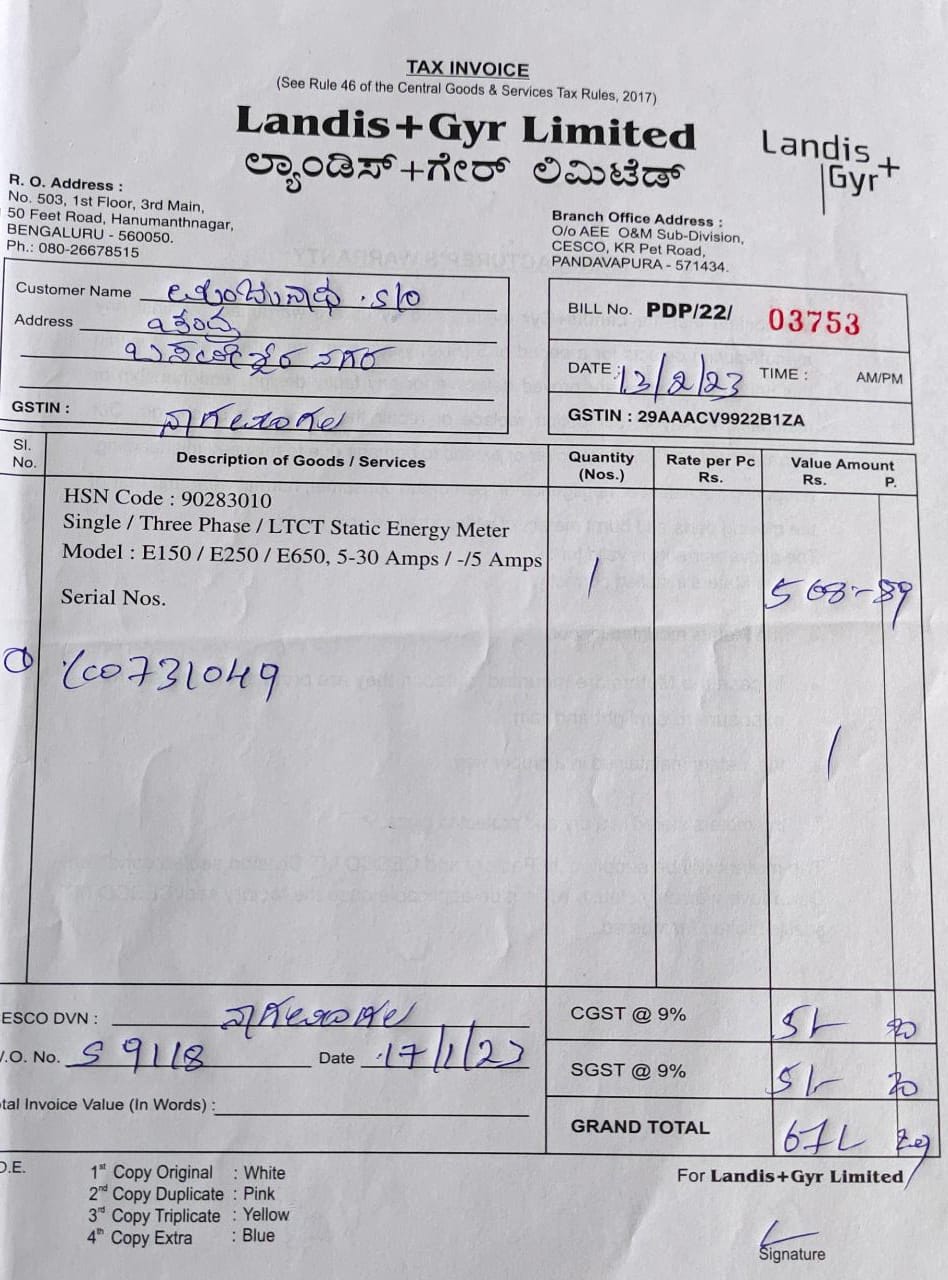 TAX INVOICE
(See Rule 46 of the Central Goods & Services Tax Rules, 2017)
Landis+Gyr Limited
ಲ್ಯಾಂಡಿಸ್+ಗೇರ್ ಲಿಮಿಟೆಡ್
Landis+
Gyr
R. O. Address :
No. 503, 1st Floor, 3rd Main,
50 Feet Road, Hanumanthnagar,
BENGALURU - 560050.
Ph.: 080-26678515
Branch Office Address :
O/o AEE O&M Sub-Division,
CESCO, KR Pet Road,
PANDAVAPURA - 571434.
Customer Name S/O
Address
GSTIN :
BILL No. PDP/22/ 03753
DATE : 13/2/23 TIME : AM/PM
GSTIN : 29AAACV9922B1ZA
Sl. No. Description of Goods / Services Quantity (Nos.) Rate per Pc Rs. Value Amount Rs. P.
HSN Code : 90283010
Single / Three Phase / LTCT Static Energy Meter
Model : E150 / E250 / E650, 5-30 Amps / -/5 Amps 1 568-89
Serial Nos.
731049
ESCO DVN :
.O. No. S 9118 Date 17/1/23
tal Invoice Value (In Words) :
CGST @ 9% 51 20
SGST @ 9% 51 20
GRAND TOTAL
O.E.
1st Copy Original : White
2nd Copy Duplicate : Pink
3rd Copy Triplicate : Yellow
4th Copy Extra : Blue
For Landis+Gyr Limited
Signature